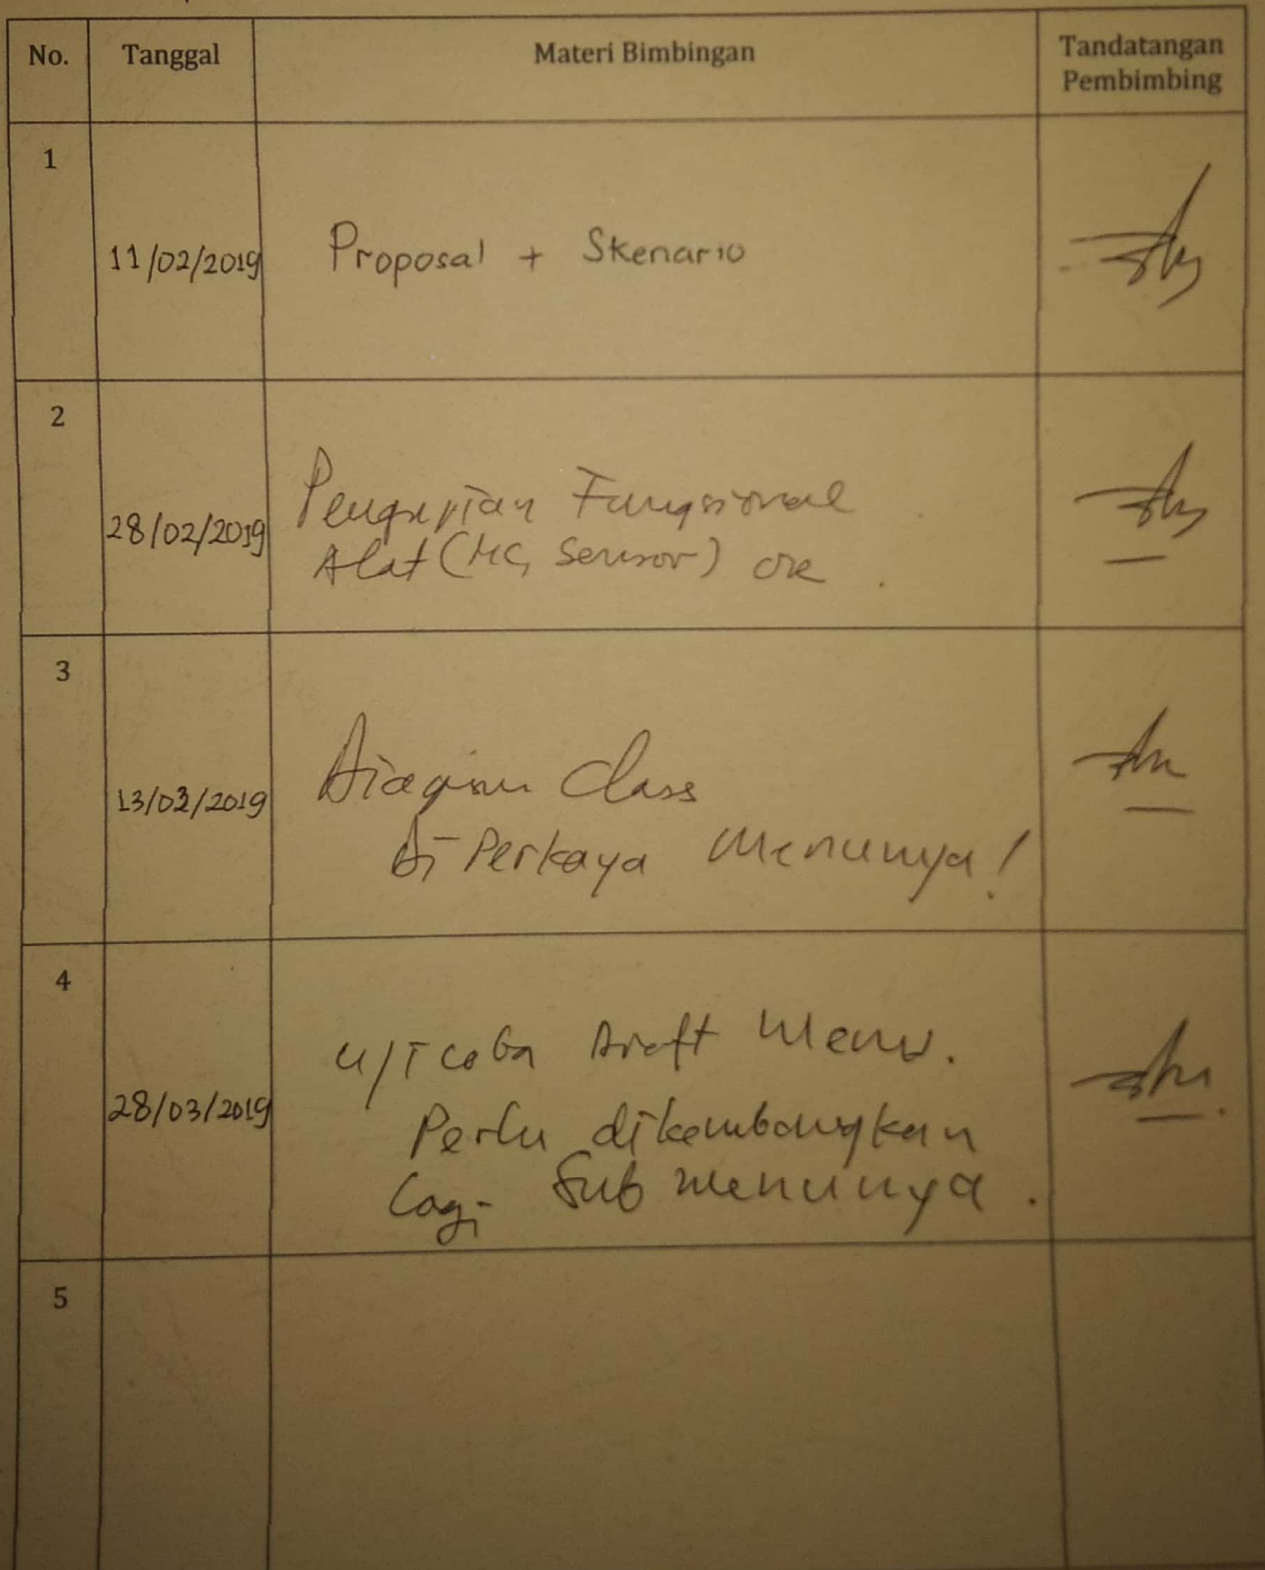 No. Tanggal Materi Bimbingan Tandatangan
Pembimbing
1
11/02/2019 Proposal + Skenario
2
28/02/2019 Pengujian Fungsional
Alat (MC, Sensor) OK.
3
13/03/2019 Diagram Class
di Perkaya Menunya!
4
28/03/2019 Uji Coba Draft Menu.
Perlu dikembangkan
Lagi Sub menunya.
5